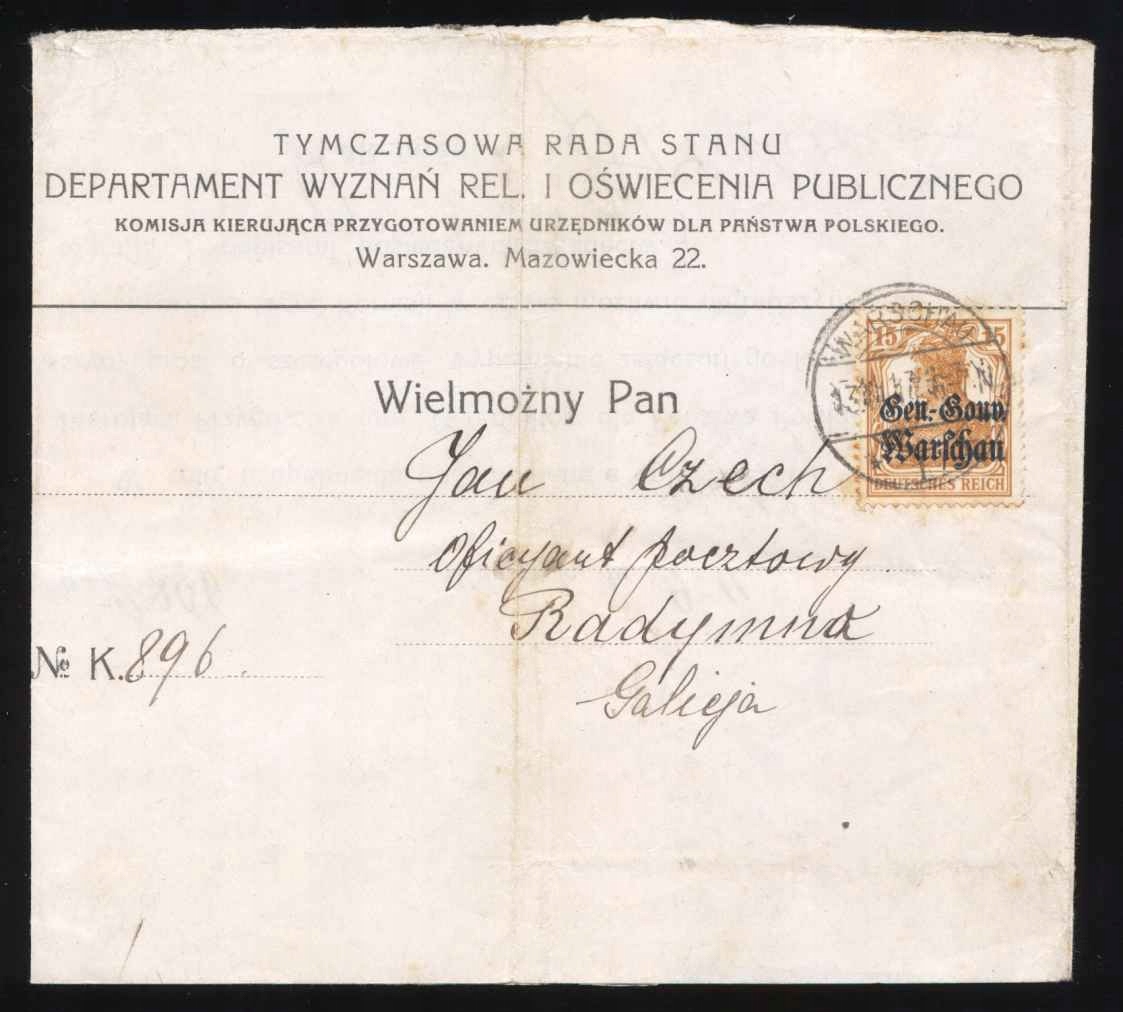 TYMCZASOWA RADA STANU
DEPARTAMENT WYZNAŃ REL. I OŚWIECENIA PUBLICZNEGO
KOMISJA KIERUJĄCA PRZYGOTOWANIEM URZĘDNIKÓW DLA PAŃSTWA POLSKIEGO.
Warszawa. Mazowiecka 22.
WARSCHAU
15 15
Gen.-Gouv.
Warschau
DEUTSCHES REICH
Wielmożny Pan
Jan Czech
Oficyant pocztowy
Radymna
Galicja
№ K. 896.